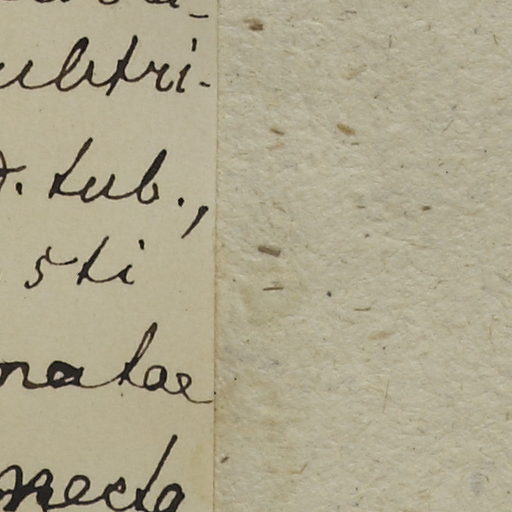 ubtri-
. tub.,
5ti
natae
necta